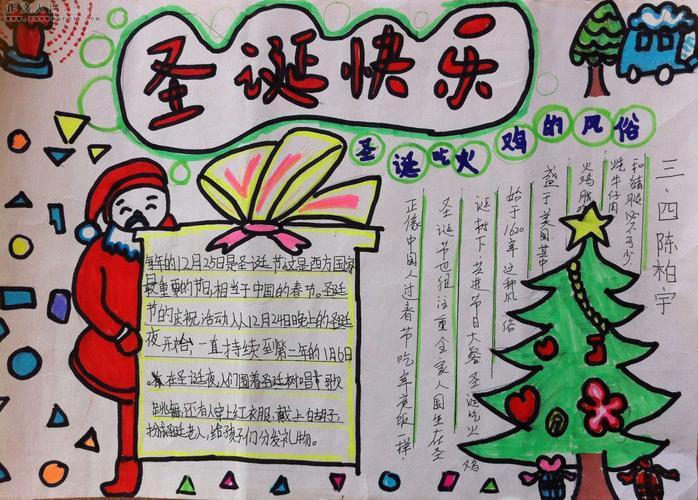 作文人
圣诞快乐
圣诞吃火鸡的风俗
三.四陈柏宇
每年的12月25日是圣诞节,这是西方国家
最重要的节日,相当于中国的春节。圣诞
节的庆祝活动从12月24日晚上的圣诞
夜开始,一直持续到第二年的1月6日
。在圣诞夜,人们围着圣诞树唱节歌
跳舞,还有人穿上红衣服,戴上白胡子,
扮演圣诞老人,给孩子们分发礼物。
正像中国人过春节吃年夜饭一样!
圣诞节也很注重全家人围坐在圣
诞树下共进节日大餐 圣诞吃火鸡
始于1620年这种风俗
盛于美国其中
火鸡
烧牛仔肉
和猪腿必不可少